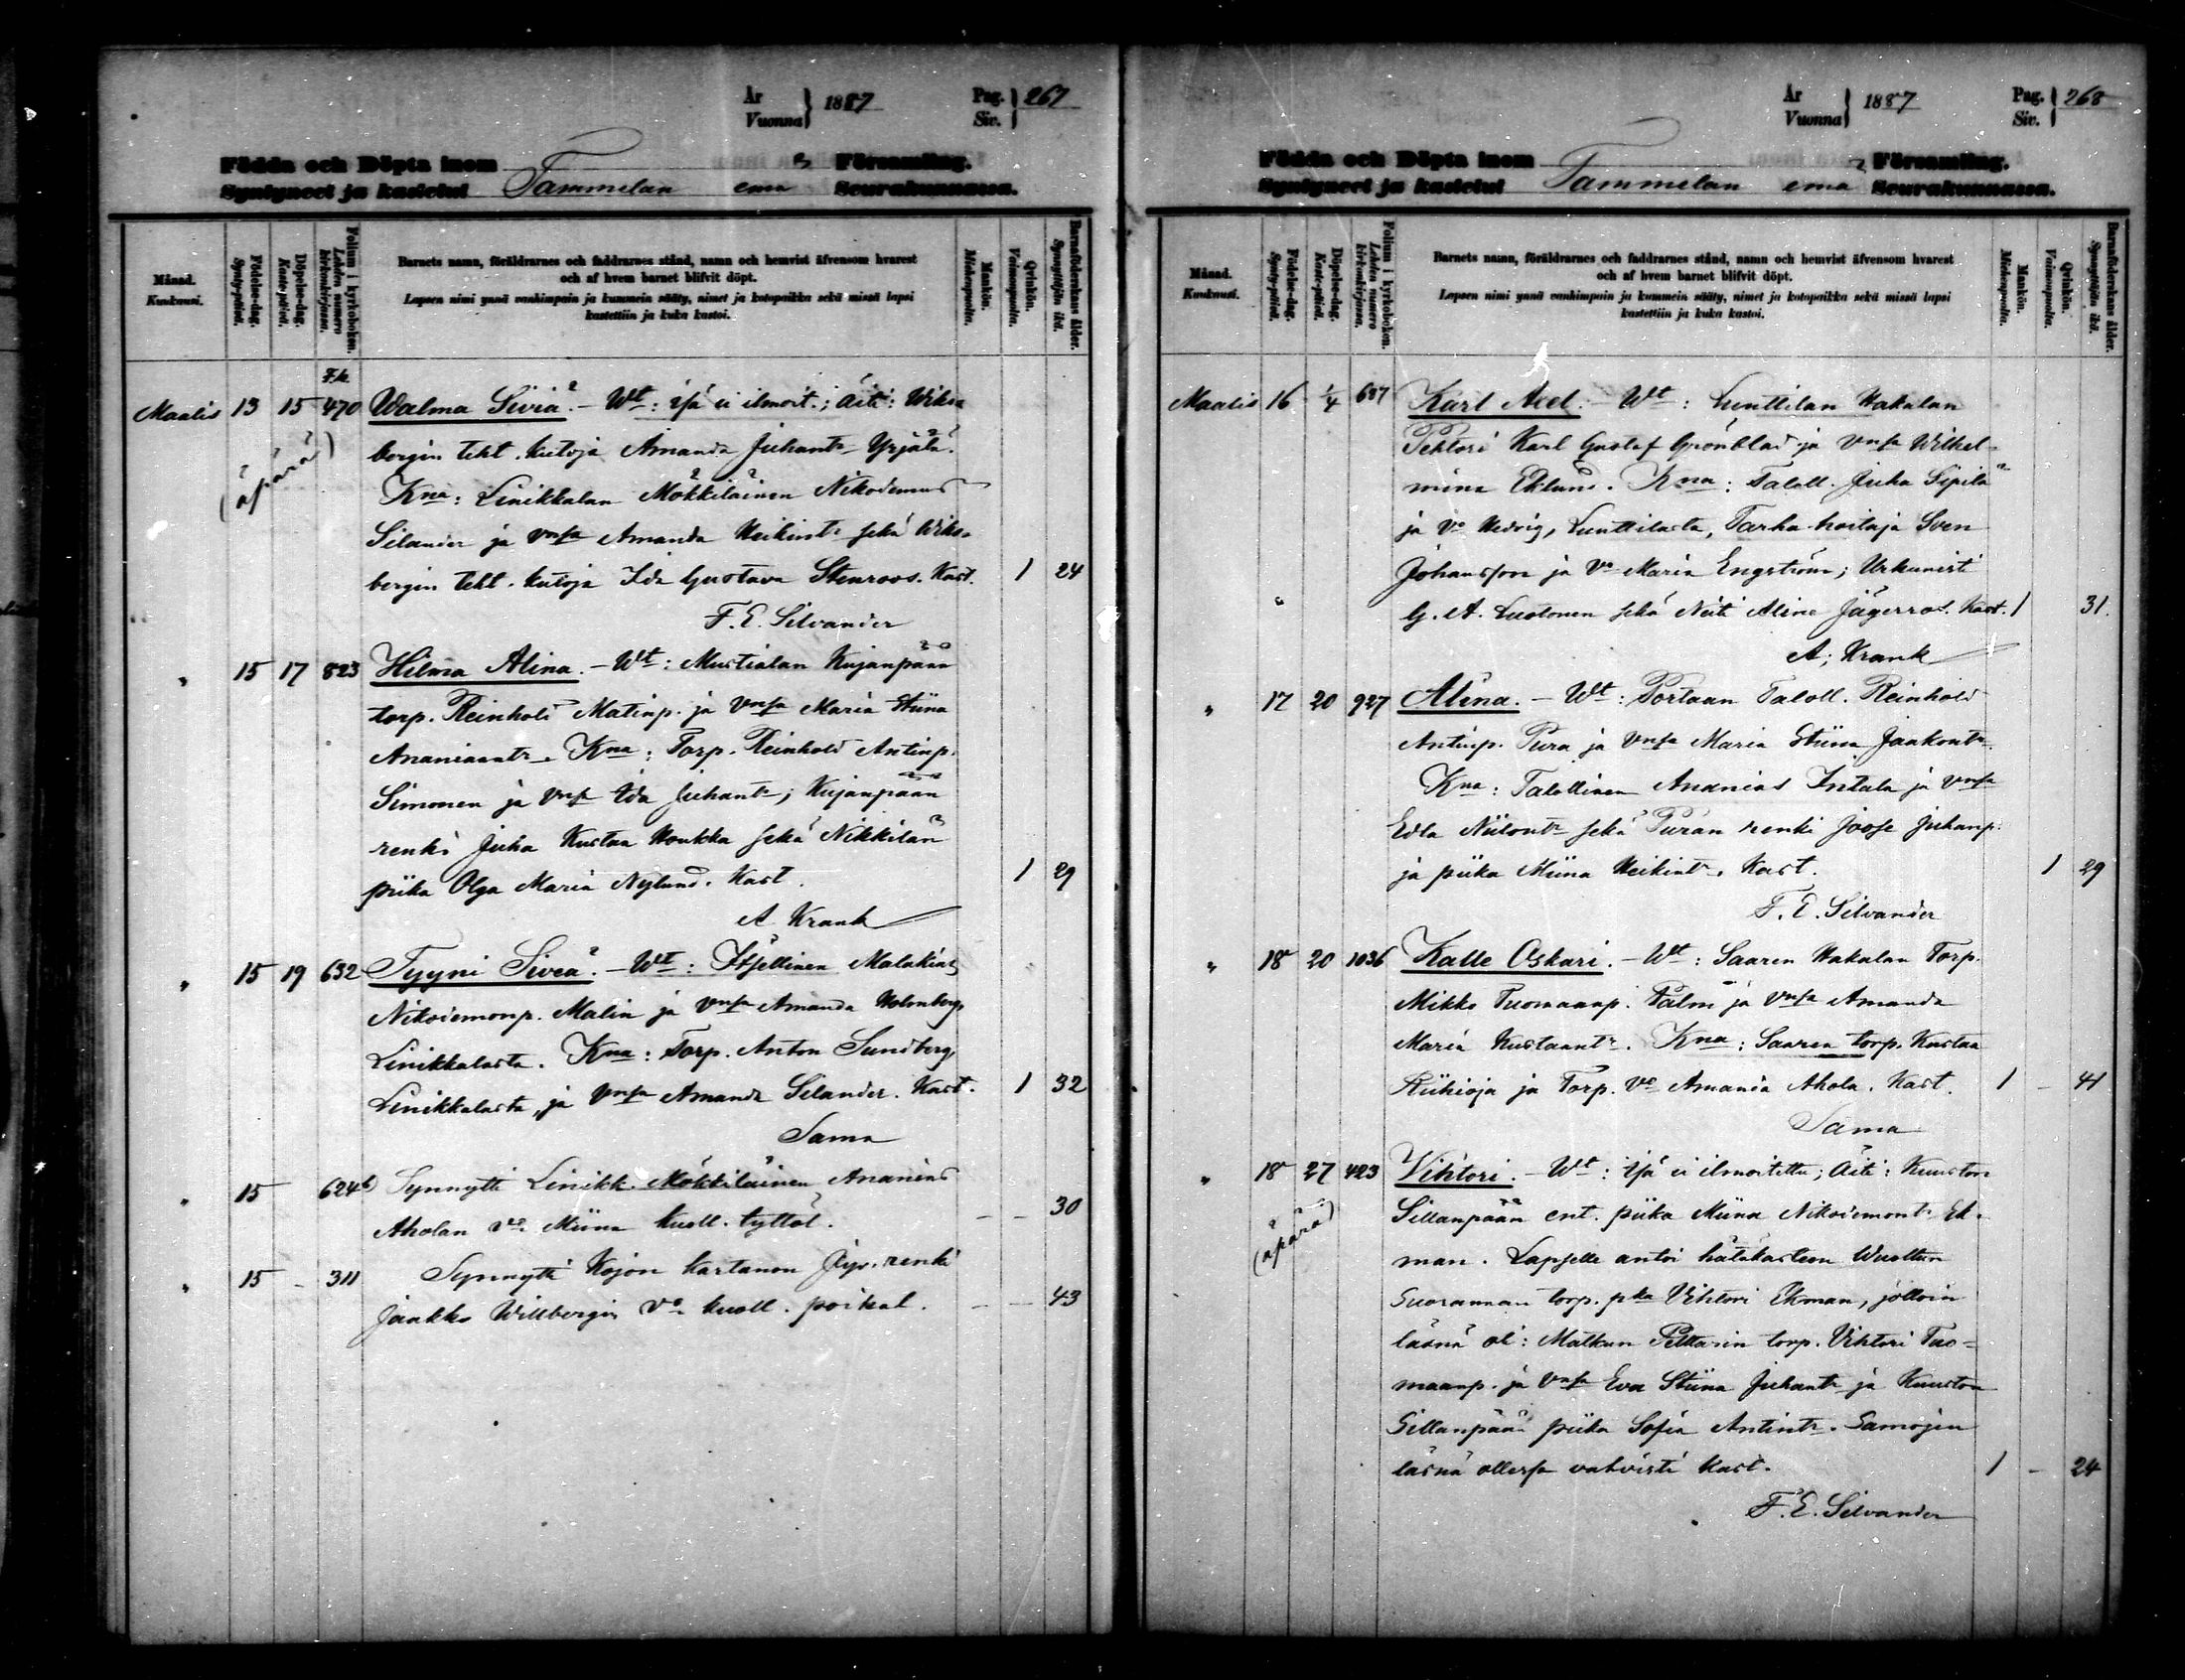 År
Vuonna
1887
Pag.
Siv.
267
Födda och Döpta inom
Församling.
Syntyneet ja kastetut Tammelan emä Seurakunnassa.
Månad.
Kuukausi.
Födelse-dag.
Synty-päivä.
Döpelse-dag.
Kaste-päivä.
Folium i kyrkoboken.
Lehden numero kirkonkirjassa.
Barnets namn, föräldrarnes och faddrarnes stånd, namn och hemvist äfvensom hvarest
och af hvem barnet blifvit döpt.
Lapsen nimi ynnä vanhimpain ja kummein sääty, nimet ja kotopaikka sekä missä lapsi
kastettiin ja kuka kastoi.
Mankön.
Miehenpuolta.
Qvinkön.
Vaimonpuolta.
Barnaföderskans ålder.
Synnyttäjän ikä.
Maalis 13 15 470 Walma Siviä. – Wt: Isä ei ilmoit.; Äiti: Wiks-
bergin teht. kutoja Amanda Juhantr. Yrjälä.
(äpärä)
Kna: Linikkalan Mökkiläinen Nikodemus
Silander ja vmsa Amanda Heikintr sekä Wiks-
bergin teht. kutoja Ida Gustava Stenroos. Kast. 1 24
F. E. Silvander
" 15 17 823 Hilma Alina. – Wt: Mustialan Kujanpään
torp. Reinhold Matinp. ja Vmsa Maria Stiina
Ananiaantr. Kna: Torp. Reinhold Antinp.
Simonen ja Vmsa Ida Juhantr; Kujanpään
renki Juha Kustaa Houkka sekä Nikkilän
piika Olga Maria Nylund. Kast. 1 29
A Krank
" 15 19 632 Tyyni Siveä. – Wt: Itsellinen Malakias
Nikodemonp. Malin ja Vmsa Amanda Holmberg,
Linikkalasta. Kna: Torp. Anton Sundberg,
Linikkalasta, ja Vmsa Amanda Silander. Kast. 1 32
Sama
" 15 624b) Synnytti Linikk. Mökkiläinen Ananias
Aholan vo. Miina kuoll. tyttöl. – – 30
" 15 – 311 Synnytti Kojon kartanon renki
Jaakko Willbergin Vo kuoll. poikal. – – 43
År
Vuonna
1887
Pag.
Siv.
268
Födda och Döpta inom
Församling.
Syntyneet ja kastetut Tammelan emä Seurakunnassa.
Månad.
Kuukausi.
Födelse-dag.
Synty-päivä.
Döpelse-dag.
Kaste-päivä.
Folium i kyrkoboken.
Lehden numero kirkonkirjassa.
Barnets namn, föräldrarnes och faddrarnes stånd, namn och hemvist äfvensom hvarest
och af hvem barnet blifvit döpt.
Lapsen nimi ynnä vanhimpain ja kummein sääty, nimet ja kotopaikka sekä missä lapsi
kastettiin ja kuka kastoi.
Mankön.
Miehenpuolta.
Qvinkön.
Vaimonpuolta.
Barnaföderskans ålder.
Synnyttäjän ikä.
Maalis 16 1/4 687 Karl Axel. – Wt: Lunttilan Hakalan
Pehtori Karl Gustaf Grönblad ja vmsa Wilhel-
mina Eklund. Kna: Taloll. Juha Sipilä
ja Vo Hedvig, Lunttilasta, Tarha-hoitaja Sven
Johansson ja Vo Maria Engström; Urkunisti
G. A. Luotonen sekä Neiti Alina Jägerroos. Kast. 1 31.
A; Krank
" 17 20 927 Alina. – Wt: Portaan Taloll. Reinhold
Antinp. Pura ja Vmsa Maria Stiina Jaakontr.
Kna: Talollinen Ananias Intala ja Vmsa
Edla Niilontr sekä Puran renki Joose Juhanp.
ja piika Miina Heikintr. Kast. 1 29
F. E. Silvander
" 18 20 1036 Kalle Oskari. – Wt: Saaren Hakalan Torp.
Mikko Tuomaanp. Palm ja Vmsa Amanda
Maria Kustaantr. Kna: Saaren torp. Kustaa
Riihioja ja Torp. Vo Amanda Ahola. Kast. 1 – 41
Sama
" 18 27 423 Vihtori. – Wt: Isä ei ilmoitettu; Äiti: Kuuston
(äpärä)
Sillanpään ent. piika Miina Nikodemontr. Ek-
man. Lapselle antoi hätäkasteen Wuoltun
Suorannan torp. pka Vihtori Ekman, jolloin
läsnä ol: Matkun Pelttarin torp. Vihtori Tuo-
maanp. ja Vmsa Eva Stiina Juhantr ja Kuuston
Sillanpään piika Sofia Antintr. Samojen
läsnä ollessa vahvisti kast. 1 – 24
F. E. Silvander